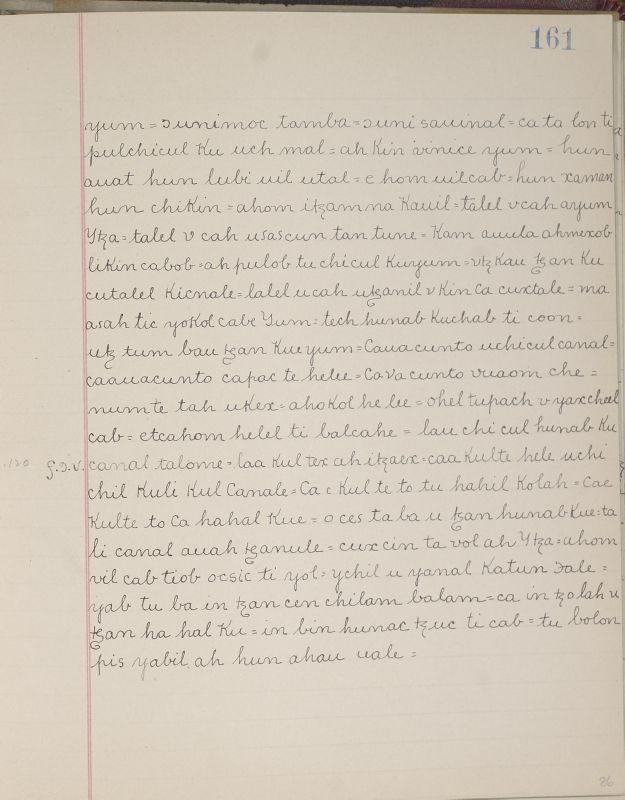 161
yum = ɔunimoc tamba = ɔuni sauinal = ca ta lon ti
pulchicul Ku uch mal = ah Kin vinice yum = hun
auat hun lubi uil utal = e hom uilcab = hun xaman
hun chiKin = ahom itzam na Kauil = talel v cah ayum
Ytza = talel v cah usascun tan tune = Kam auula ahmexob
liKin cabob = ah pulob tu chicul Kuyum = vtz Kau tzan Ku
cutalel Kicnale = lalel u cah utzanil v Kin ca cuxtale = ma
asah tic yoKol cabe Yum = tech hunab Kuchab ti coon =
utz tum bau tzan Kue yum = Cauacunto uchicul canal =
caauacunto capac te helee = Cavacunto vuaom che =
numte tah uKex = ahoKol he lee = ohel tupach v yaxcheel
cab = etcahom helel ti balcahe = lau chi cul hunab Ku
120 f.ɔ.v. canal talome = laa Kul tex ah itzaex = caa Kulte hele uchi
chil Kuli Kul Canale = Ca c Kul te to tu hahil Kolah = Cae
Kulte to Ca hahal Kue = o ces ta ba u tzan hunab Kue = ta
li canal auah tzanule = cux cin ta vol ah Ytza = ahom
vil cab tiob ocsic ti yol = ychil u yanal Katun ɔale =
yab tu ba in tzan cen chilam balam = ca in tzolah u
tzan ha hal Ku = in bin hunac tzuc ti cab = tu bolon
pis yabil ah hun ahau uale =
86